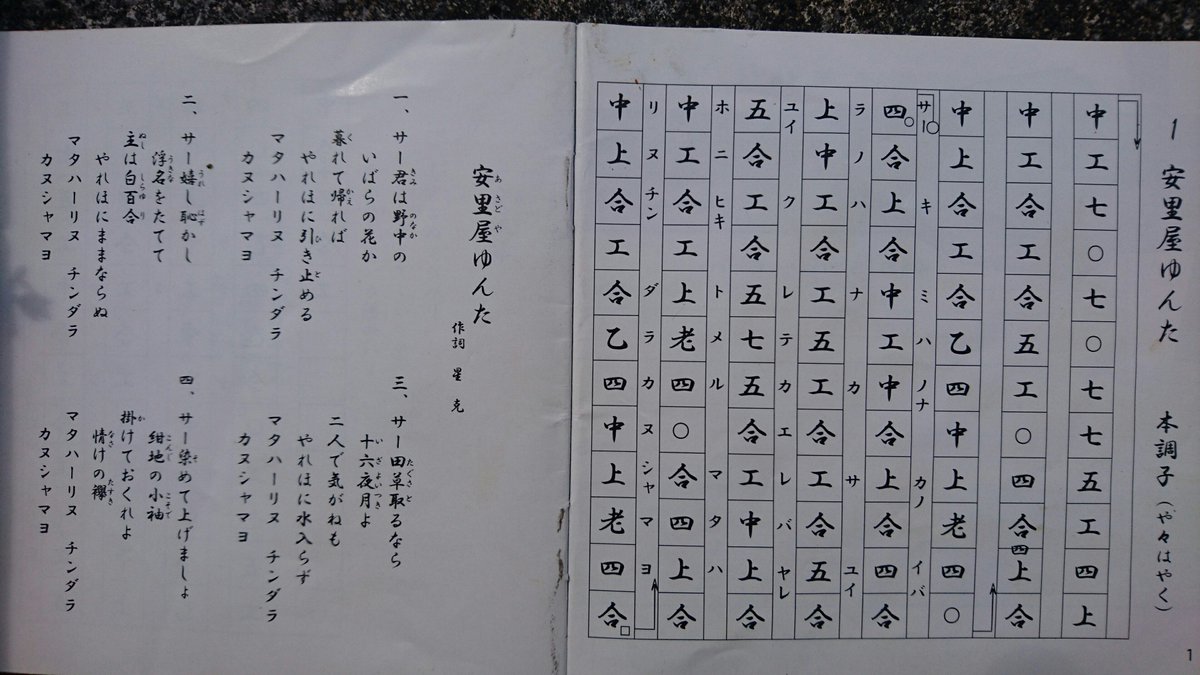 1 安里屋ゆんた 本調子（やゝはやく）
中工七○七○七七五工四上
中工合合五工○四合四上合
中上合工合乙四中上老四○
サー○ キ ミ ハ ノナ カノ イバ
四○合上合中工中合上合四合
ラ ノ ハ ナ カ サ ユイ
上中工合工五工合工合五合
ユイ ク レ テ カ エ レ バ ヤレ
五合工合五七五合工中上合
ホ ニ ヒキ ト メ ル マ タ ハ
中工合工上老四○合四上合
リ ヌ チン ダ ラ カ ヌ シャ マ ヨ
中上合工合乙四中上老四合□
1
安里屋ゆんた
あさどや
作詞 星 克
一、サー君は野中の
きみ のなか
いばらの花か
暮れて帰れば
く かえ
やれほに引き止める
ひ と
マタハーリヌ チンダラ
カヌシャマヨ
二、サー嬉し恥かし
うれ はず
浮名をたてて
うきな
主は白百合
ぬし しらゆり
やれほにままならぬ
マタハーリヌ チンダラ
カヌシャマヨ
三、サー田草取るなら
たぐさ と
十六夜月よ
いざよいつき
二人で気がねも
やれほに水入らず
マタハーリヌ チンダラ
カヌシャマヨ
四、サー染めて上げましょ
そ
紺地の小袖
こんじ こそで
掛けておくれよ
か
情けの襷
なさ たすき
マタハーリヌ チンダラ
カヌシャマヨ